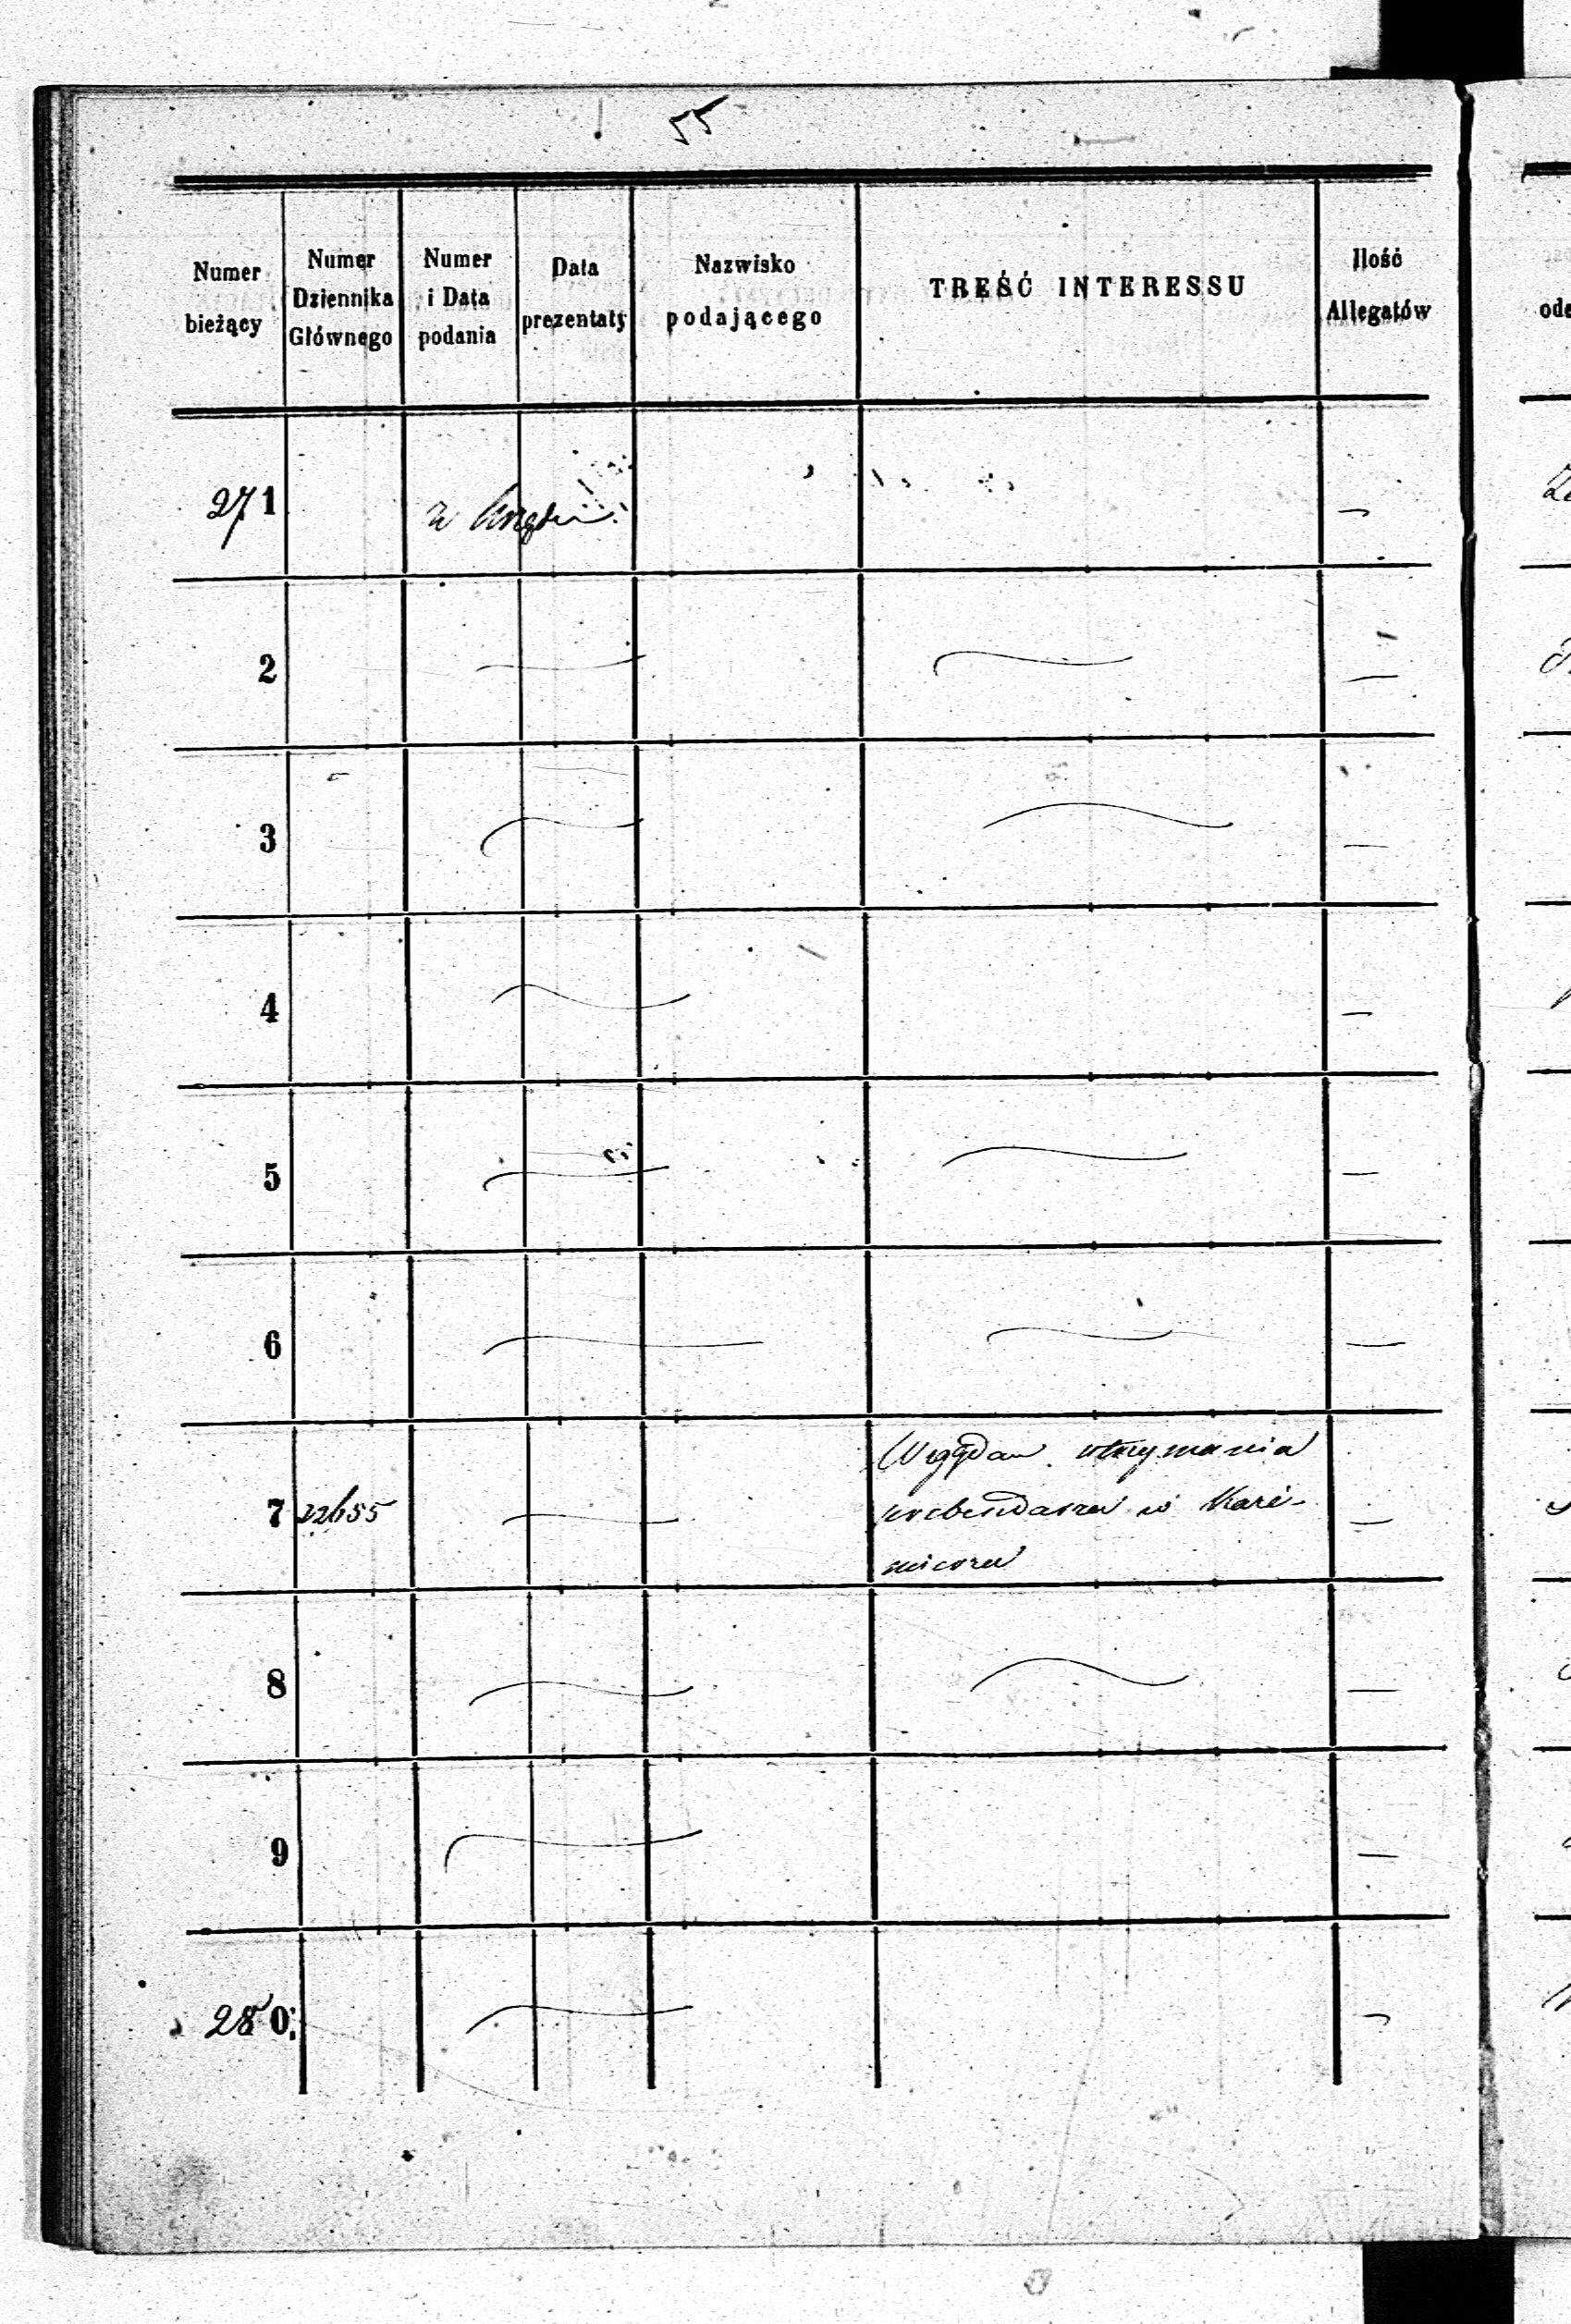 55
Numer bieżący
Numer Dziennika Głównego
Numer i Data podania
Data prezentaty
Nazwisko podającego
TREŚĆ INTERESSU
Ilość Allegatów
271
z Urzędu
2
3
4
5
6
7 22655
utrzymania
w Kazi-
mierzu
8
9
280